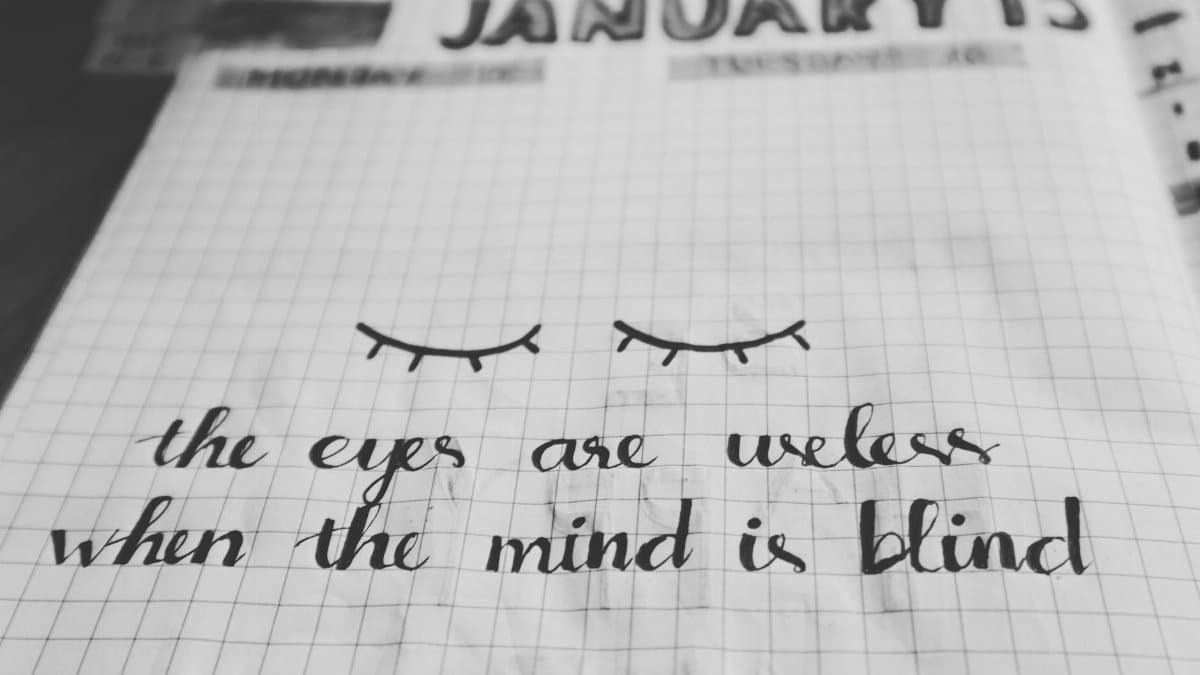 JANUARY 15
MONDAY 15
TUESDAY 16
the eyes are useless
when the mind is blind